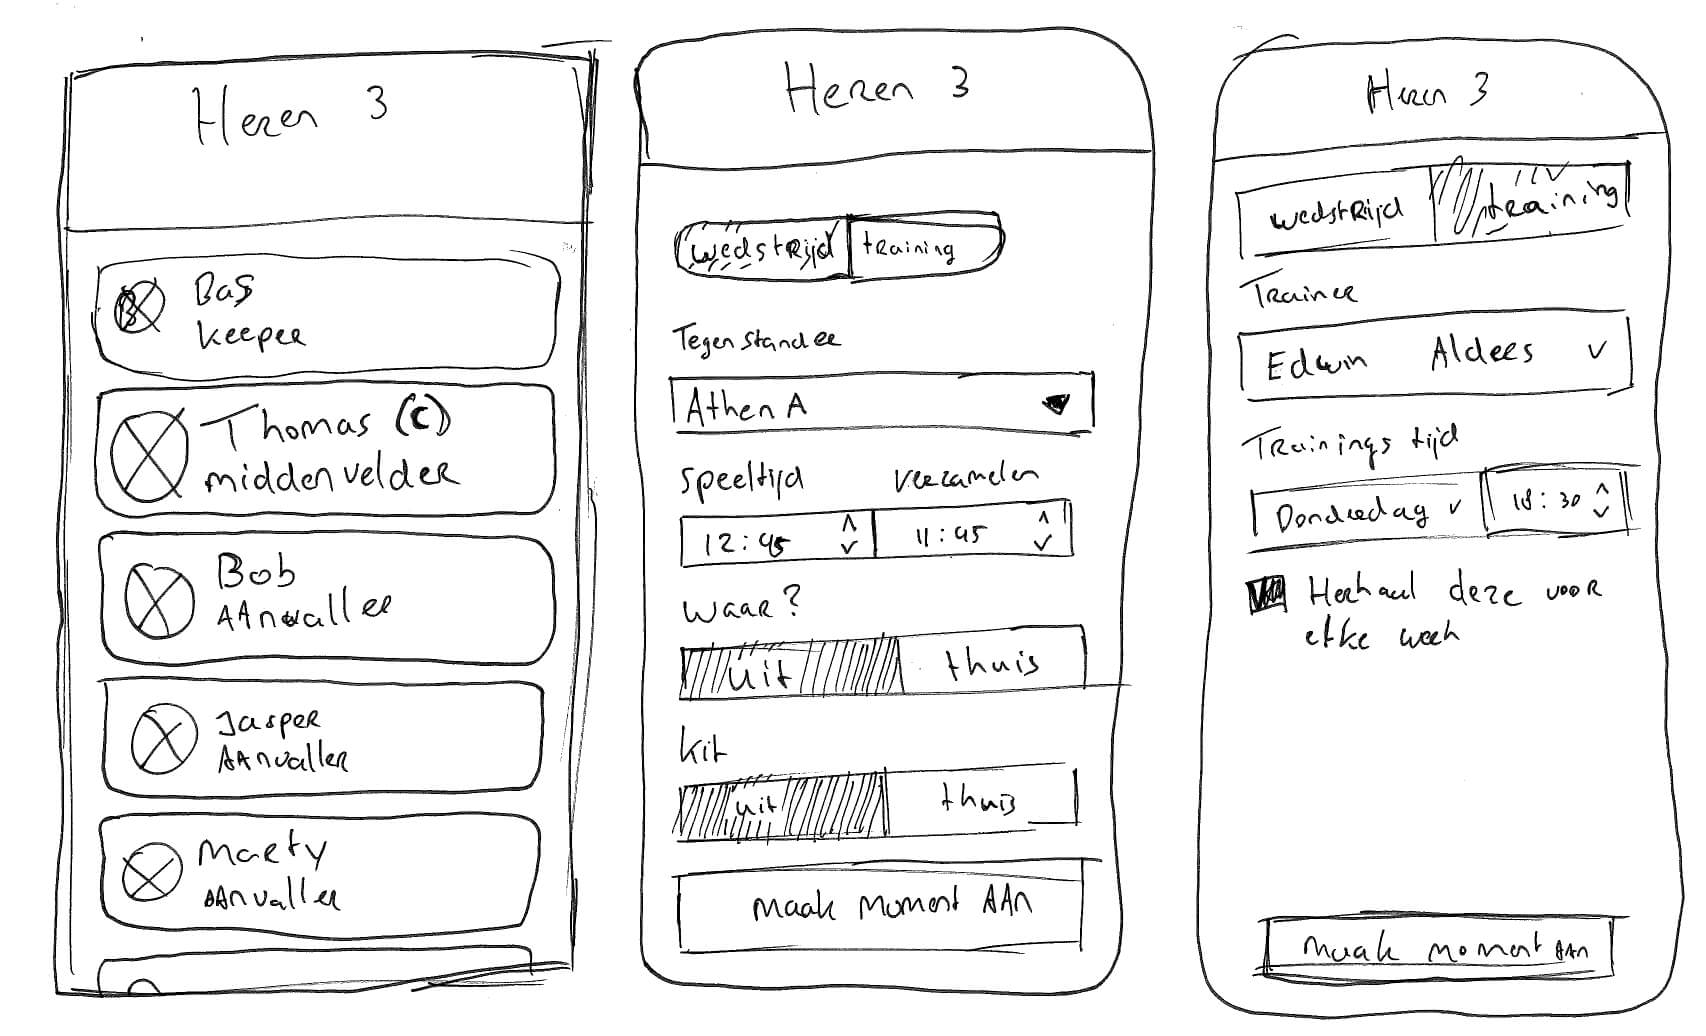 Heren 3
B
Bas
Keeper
Thomas (C)
middenvelder
Bob
AAnvaller
Jasper
AAnvaller
Marty
AAnvaller
Heren 3
wedstRijd training
Tegenstander
Athena A
Speeltijd verzamelen
12:45 11:45
waar?
uit thuis
Kit
uit thuis
maak moment AAn
Heren 3
wedstRijd training
Trainer
Edwin Alders
Trainings tijd
Donderdag 18:30
Herhaal deze voor
elke week
maak moment AAn